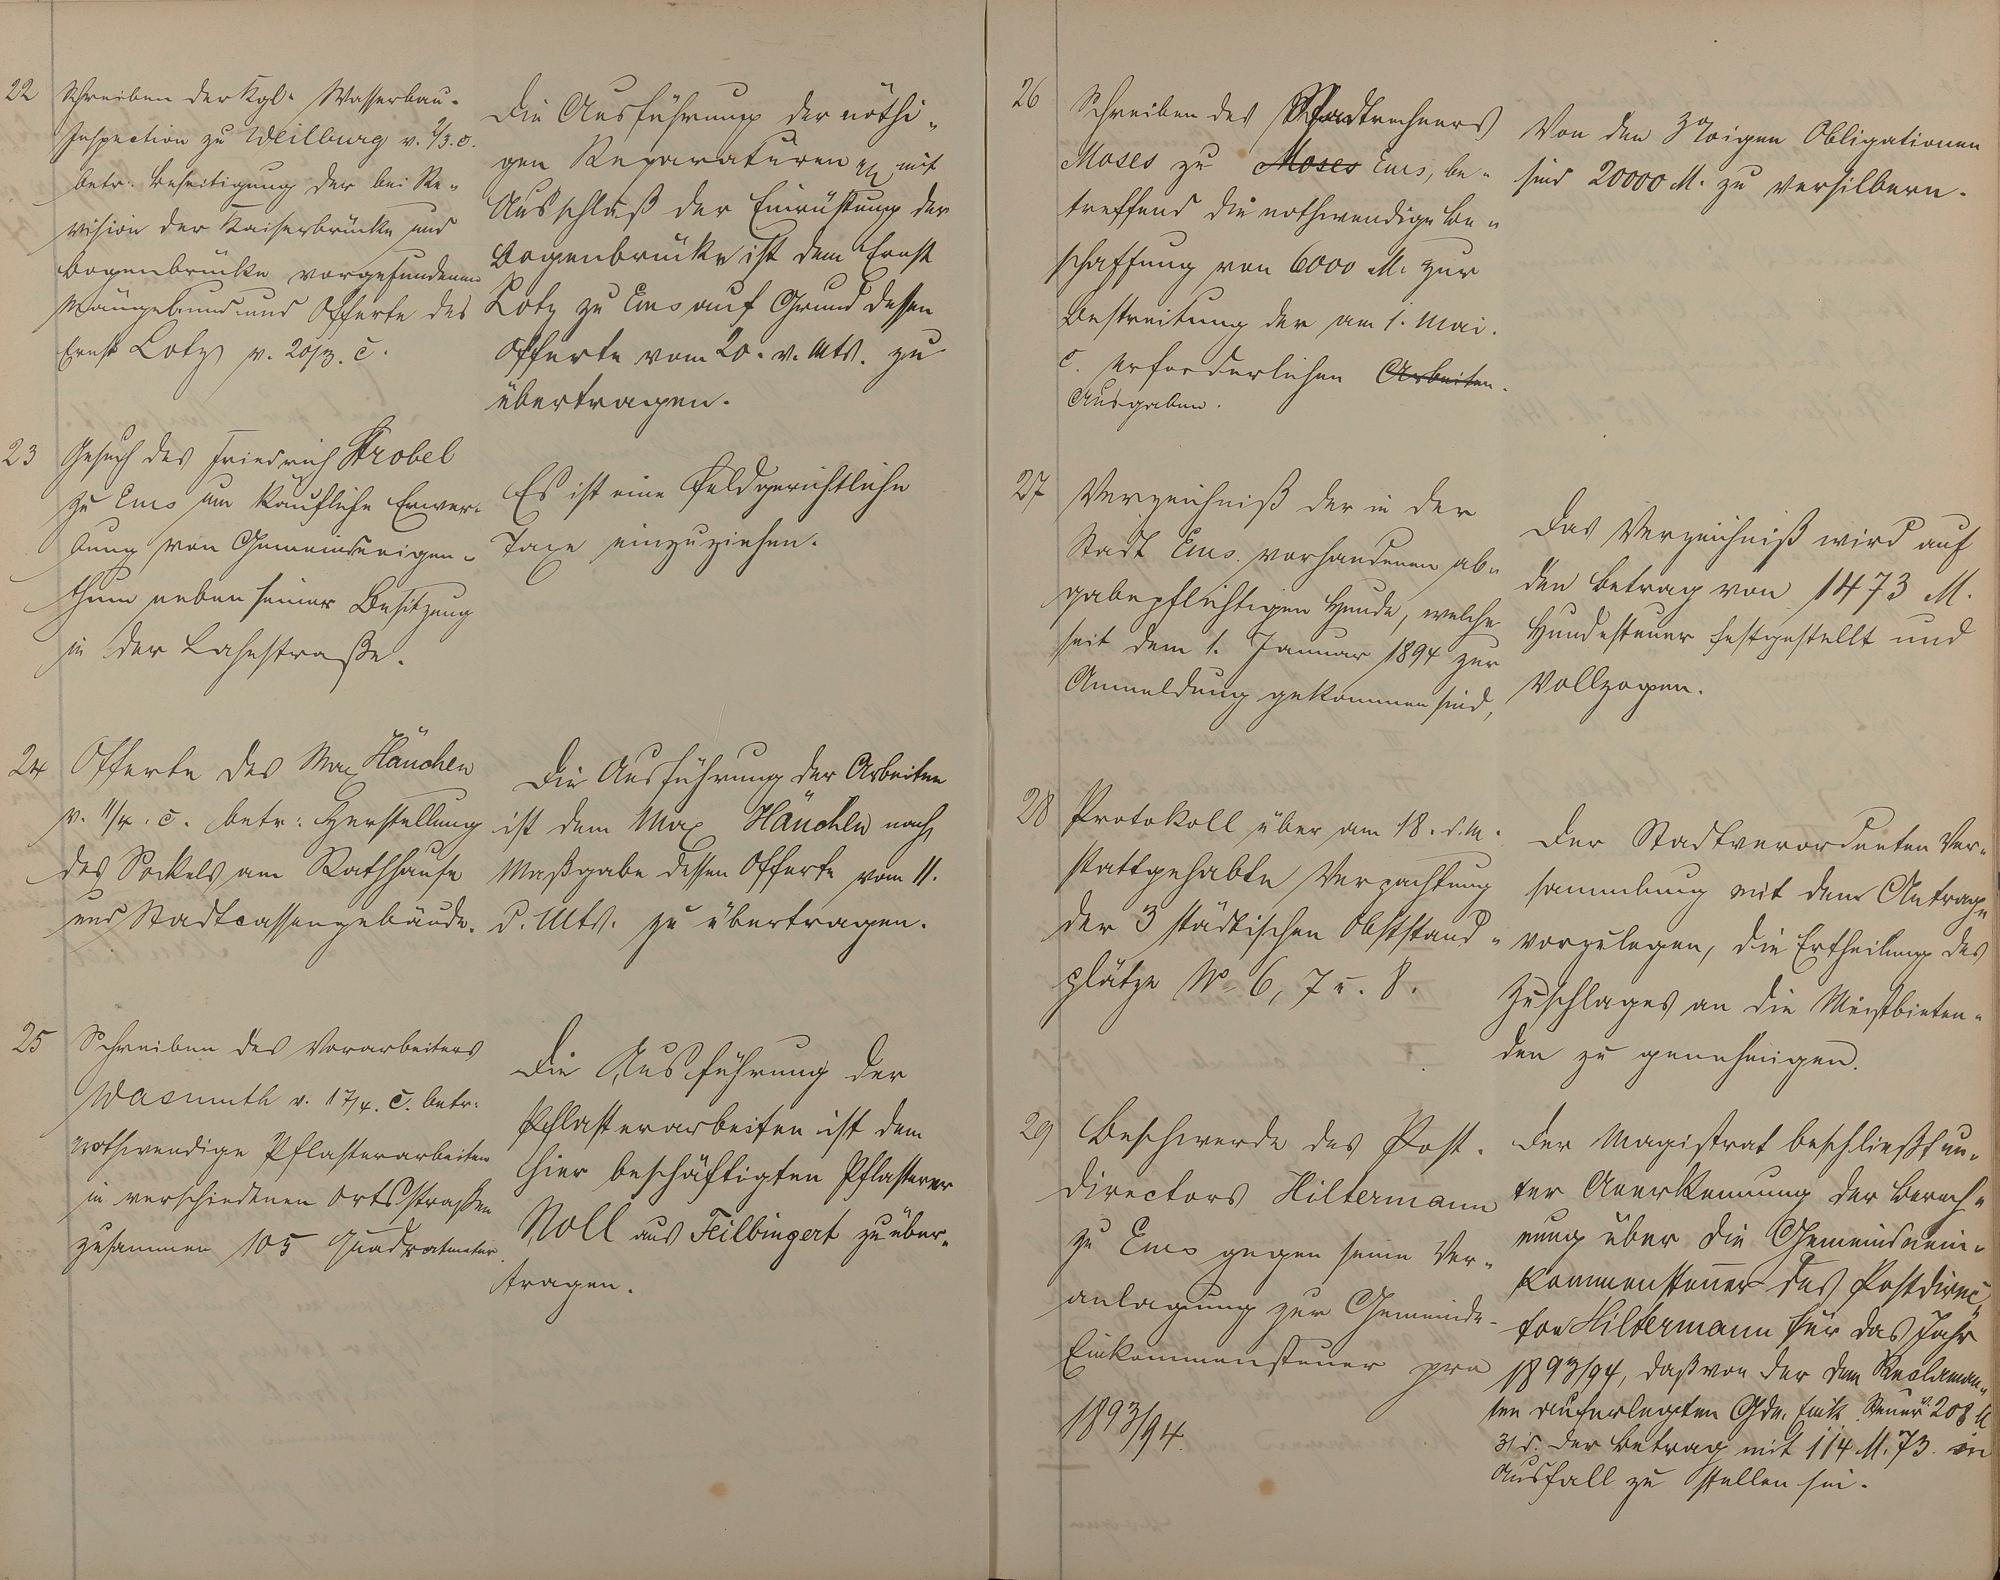 22
Schreiben der Kgl. Wasserbau-
Inspection zu Weilburg v. 9/3. c.
betr: Beseitigung der bei Re-
vision der Kaiserbrücke und
Bogenbrücke vorgefundenen
Mängel und Offerte des
Ernst Lotz v. 20/3. c.
Die Ausführung der nöthi-
gen Reparaturen mit
Ausschluß der Einrüstung der
Bogenbrücke ist dem Ernst
Lotz zu Ems auf Grund dessen
Offerte vom 20. v. Mts. zu
übertragen.
23
Gesuch des Friedrich Strobel
zu Ems um käufliche Erwer-
bung von Gemeindeeigen-
thum neben seiner Besitzung
in der Lahnstraße.
Es ist eine feldgerichtliche
Taxe einzuziehen.
24
Offerte des Max Hänchen
v. 11/4. c. betr: Herstellung
des Sockels am Rathhause
und Stadtcassengebäude.
Die Ausführung der Arbeiten
ist dem Max Hänchen nach
Maßgabe dessen Offerte vom 11.
d. Mts. zu übertragen.
25
Schreiben des Vorarbeiters
Wasmuth v. 17/4. c. betr:
nothwendige Pflasterarbeiten
in verschiedenen Ortsstraßen
zusammen 105 Quadratmeter.
Die Ausführung der
Pflasterarbeiten ist dem
hier beschäftigten Pflasterer
Noll aus Feilbingert zu über-
tragen.
26
Schreiben des Stadtrechners
Moses zu Moses Ems, be-
treffend die nothwendige Be-
schaffung von 6000 M. zur
Bestreitung der am 1. Mai.
c. erforderlichen Arbeiten.
Ausgaben.
Von den 3%igen Obligationen
sind 20000 M. zu versilbern.
27
Verzeichniß der in der
Stadt Ems vorhandenen ab-
gabepflichtigen Hunde, welche
seit dem 1. Januar 1894 zur
Anmeldung gekommen sind,
Das Verzeichniß wird auf
den Betrag von 1473 M.
Hundesteuer festgestellt und
vollzogen.
28
Protokoll über am 18. d. M.
stattgehabte Verpachtung
der 3 städtischen Obststand-
plätze No 6, 7 u. 8.
Der Stadtverordneten Ver-
sammlung mit dem Antrage
vorzulegen, die Ertheilung des
Zuschlages an die Meistbieten-
den zu genehmigen.
29
Beschwerde des Post-
directors Hiltermann
zu Ems gegen seine Ver-
anlagung zur Gemeinde-
Einkommensteuer pro
1893/94.
Der Magistrat beschließt un-
ter Anerkennung der Berech-
nung über die Gemeindeein-
kommensteuer des Postdirec-
tor Hiltermann für das Jahr
1893/94, daß von der dem Reclaman-
ten auferlegten Gde. Eink. Steuer v. 208 M
31 d. der Betrag mit 114 M. 73 in
Ausfall zu stellen sei.